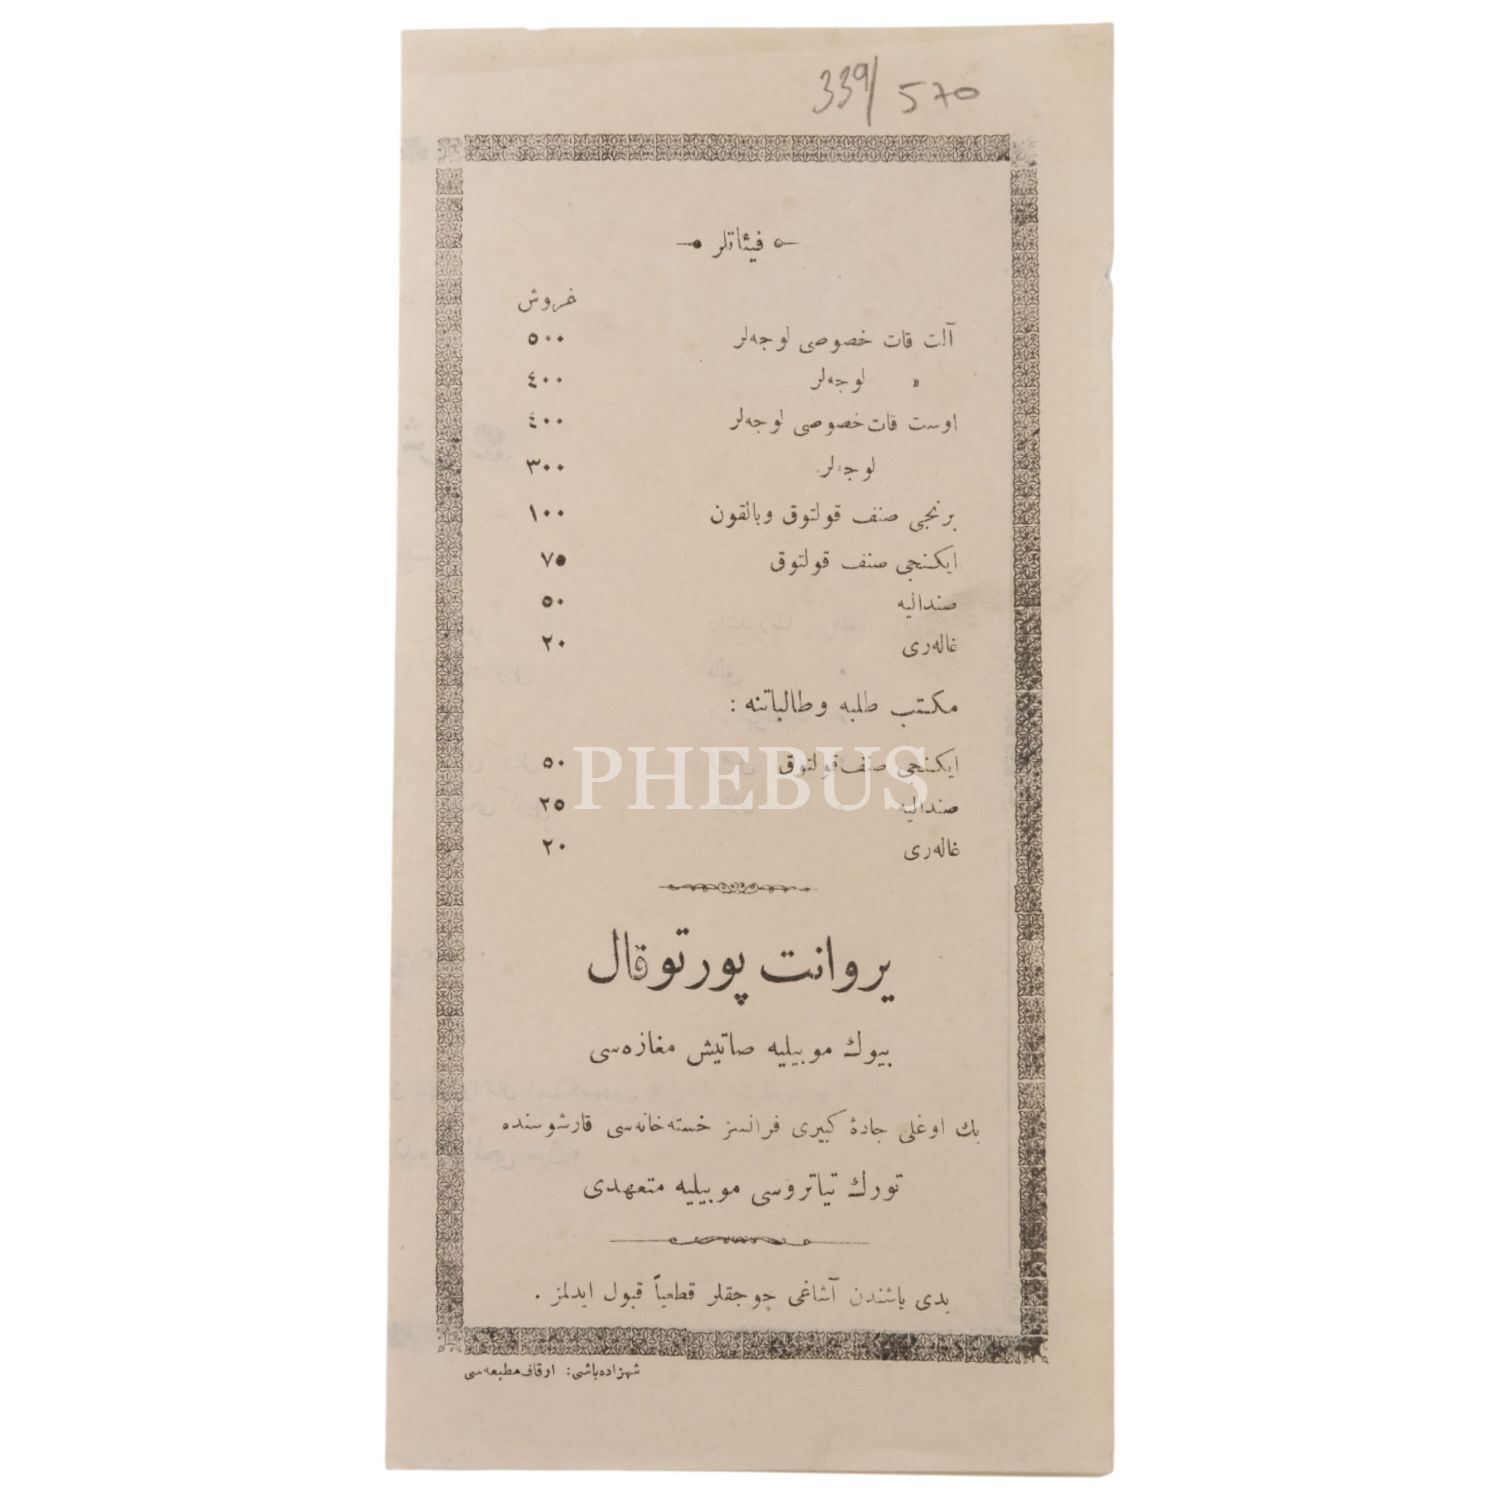 339/ 570
فيئاتلر
غروش
آلت قات خصوصى لوجه‌لر ٥٠٠
» لوجه‌لر ٤٠٠
اوست قات خصوصى لوجه‌لر ٤٠٠
لوجه‌لر ٣٠٠
برنجى صنف قولتوق وبالقون ١٠٠
ايكنجى صنف قولتوق ٧٥
صنداليه ٥٠
غاله‌رى ٢٠
مكتب طلبه وطالباتنه :
ايكنجى صنف قولتوق ٥٠
صنداليه ٢٥
غاله‌رى ٢٠
PHEBUS
يروانت پورتوقال
بيوك موبيليه صاتيش مغازه‌سى
بك اوغلى جادهٔ كبيرى فرانسز خسته‌خانه‌سى قارشوسنده
تورك تياتروسى موبيليه متعهدى
يدى ياشندن آشاغى چوجقلر قطعياً قبول ايدلمز .
شهزاده‌باشى: اوقاف مطبعه‌سى